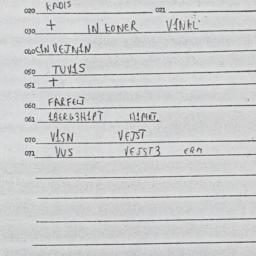 020 KADIS 021
030 + IN KONER V1NKL
040 C1N VEJN1N
050 TUV1S
051 +
060 FARFELT
061 1BERG3H1PT
070 V1SN VEJST
071 VUS VEJST3 ERM